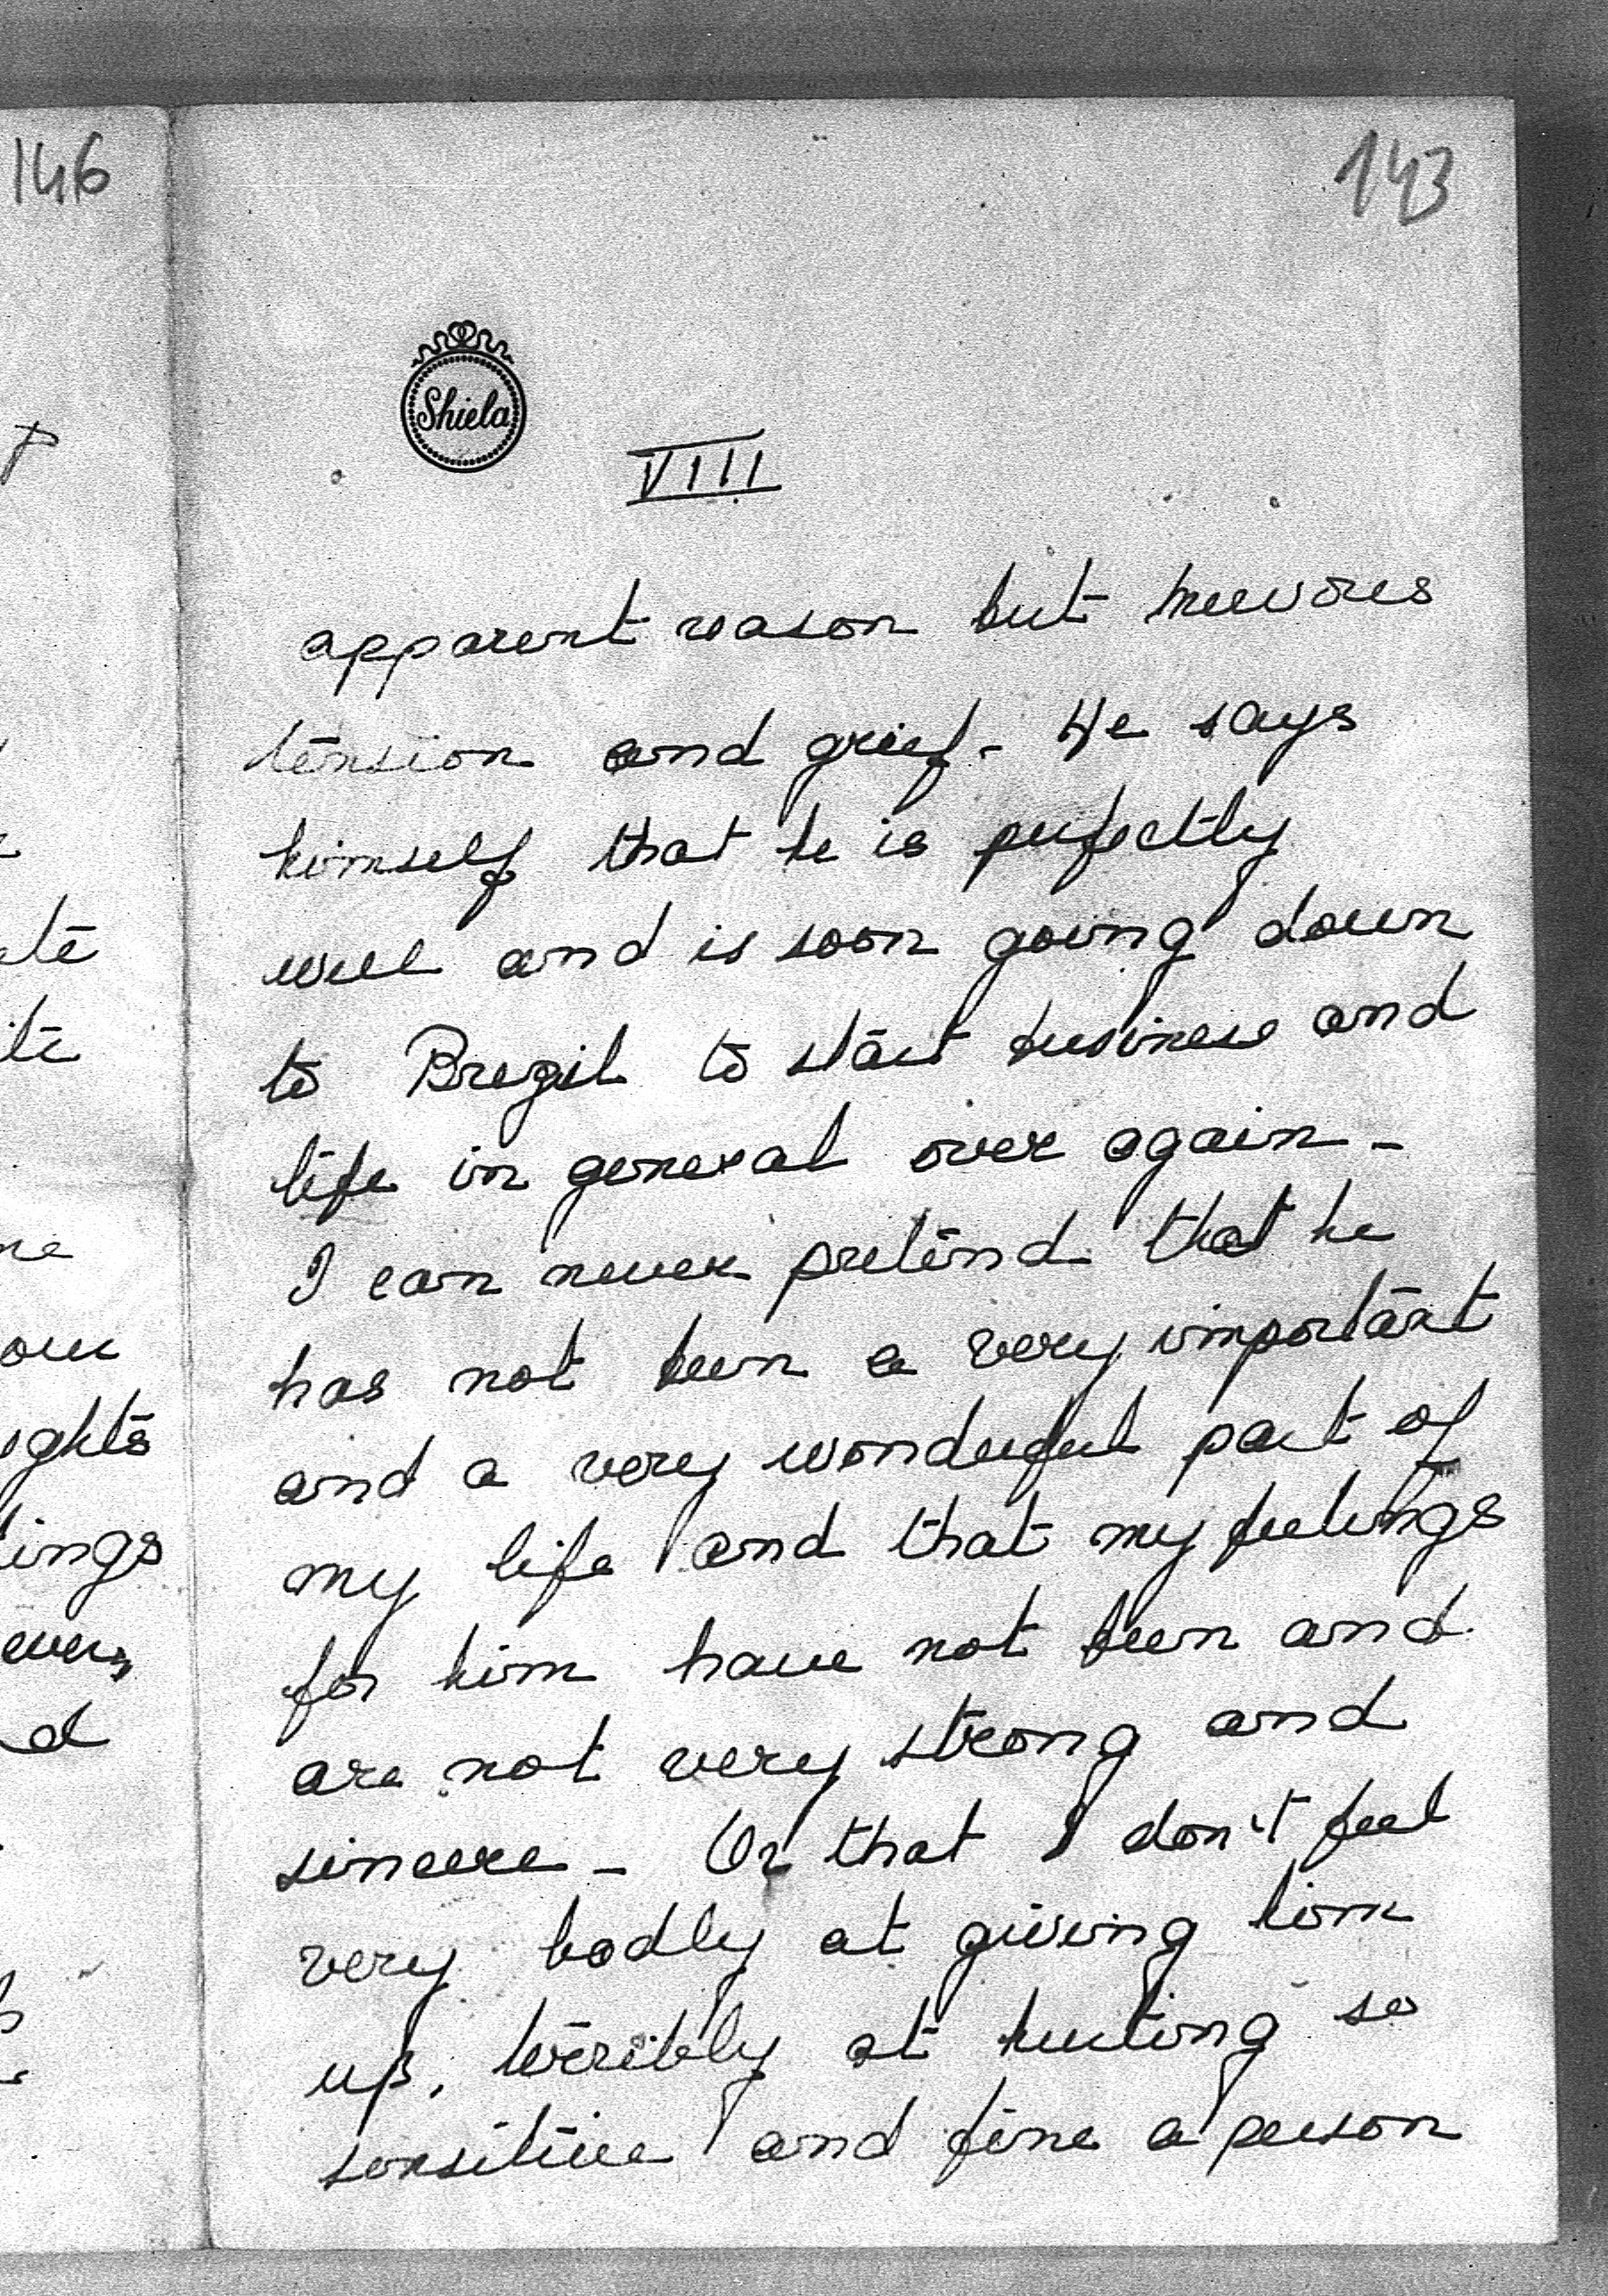 146
143
Shiela
VIII
apparent reason but neevous
tension and grief - He says
himself that he is perfectly
well and is soon going down
to Brezil to start business and
life in general over again -
I can never pretend that he
has not been a very important
and a very wonderful part of
my life and that my feelings
for him have not been and
are not very strong and
sincere - Or that I don't feel
very badly at giving him
up, terribly at hurting so
sensitive and fine a person